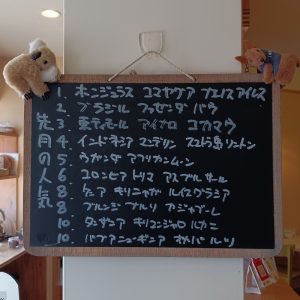 先月の人気
1. ホンジュラス コマヤグア ブエノスアイレス
2. ブラジル ファゼンダ バウ
3. 東ティモール アイナロ コカマウ
4. インドネシア マンデリン スマトラ島 リントン
5. ウガンダ アフリカンムーン
6. コロンビア トリマ アスプルサール
8. ケニア キリニャガ ルイズグラシア
8. ブルンジ ブルリ アジャブーレ
10. タンザニア キリマンジャロ ルカニ
10. パプアニューギニア オカパ ルツ